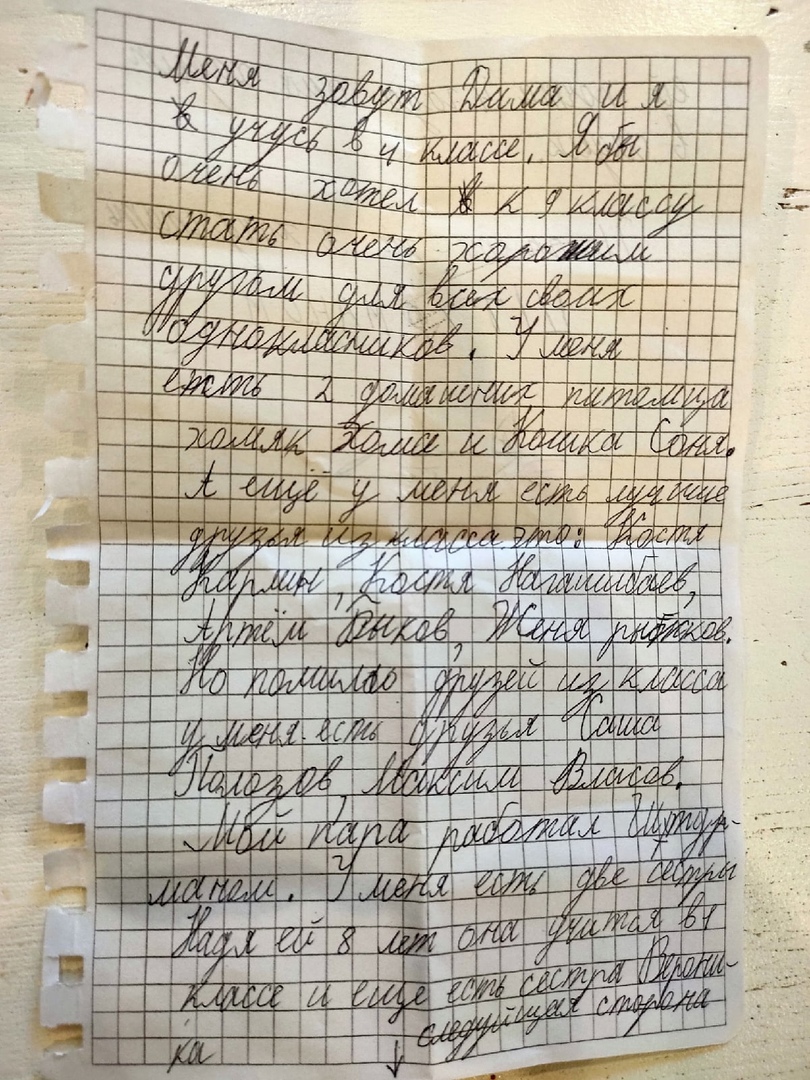 Меня зовут Дима и я
учусь в 4 классе. Я бы
очень хотел к 9 классу
стать очень хорошим
другом для всех своих
однокласников. У меня
есть 2 домашних питомца
хомяк Хома и Кошка Соня.
А ещё у меня есть лучшие
друзья из класса это: Костя
Кармин, Костя Нагашибаев,
Артём Быков, Женя рыбяков.
Но помимо друзей из класса
у меня есть друзья Саша
Полозов, Максим Власов.
Мой папа работал Штур-
маном. У меня есть две сёстры
Надя ей 8 лет она учится в 1
классе и еще есть сестра Верони-
ка ↓ следуйщая сторона